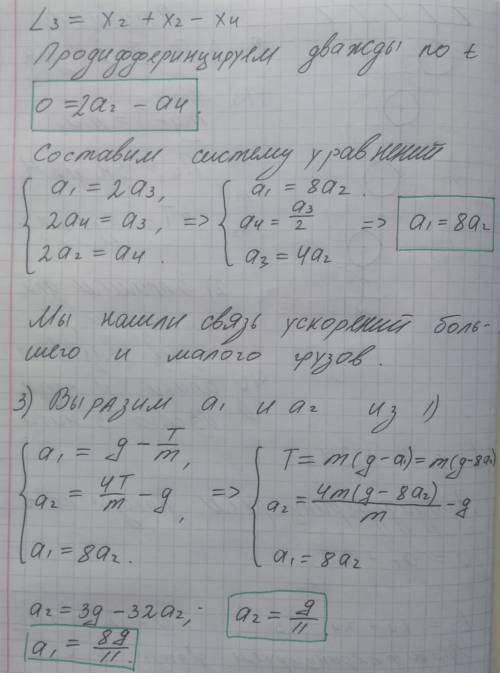 L₃ = x₂ + x₂ − x₄
Продифферинцируем дважды по t
0 = 2a₂ − a₄.
Составим систему уравнений
{ a₁ = 2a₃, 2a₄ = a₃, 2a₂ = a₄. => { a₁ = 8a₂. a₄ = a₃/2 a₃ = 4a₂ => a₁ = 8a₂
Мы нашли связь ускорений боль-
шего и малого грузов.
3) Выразим a₁ и a₂ из 1)
{ a₁ = g − T/m, a₂ = 4T/m − g, a₁ = 8a₂. => { T = m(g−a₁) = m(g−8a₂) a₂ = 4m(g − 8a₂)/m − g a₁ = 8a₂
a₂ = 3g − 32a₂, a₂ = g/11
a₁ = 8g/11.